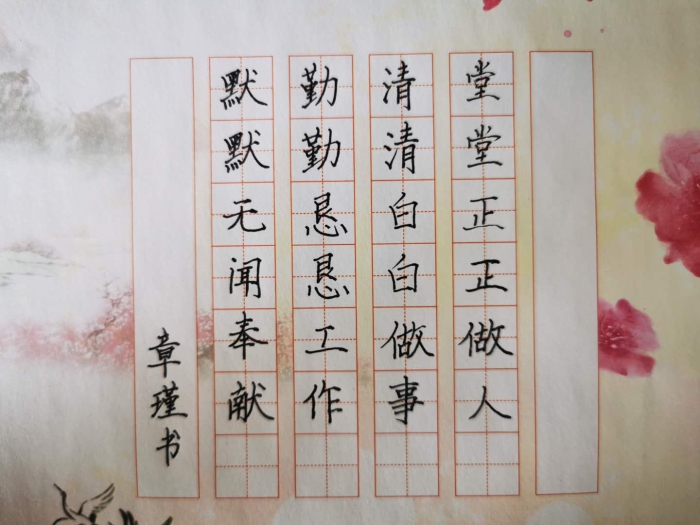 堂堂正正做人
清清白白做事
勤勤恳恳工作
默默无闻奉献
章瑾书